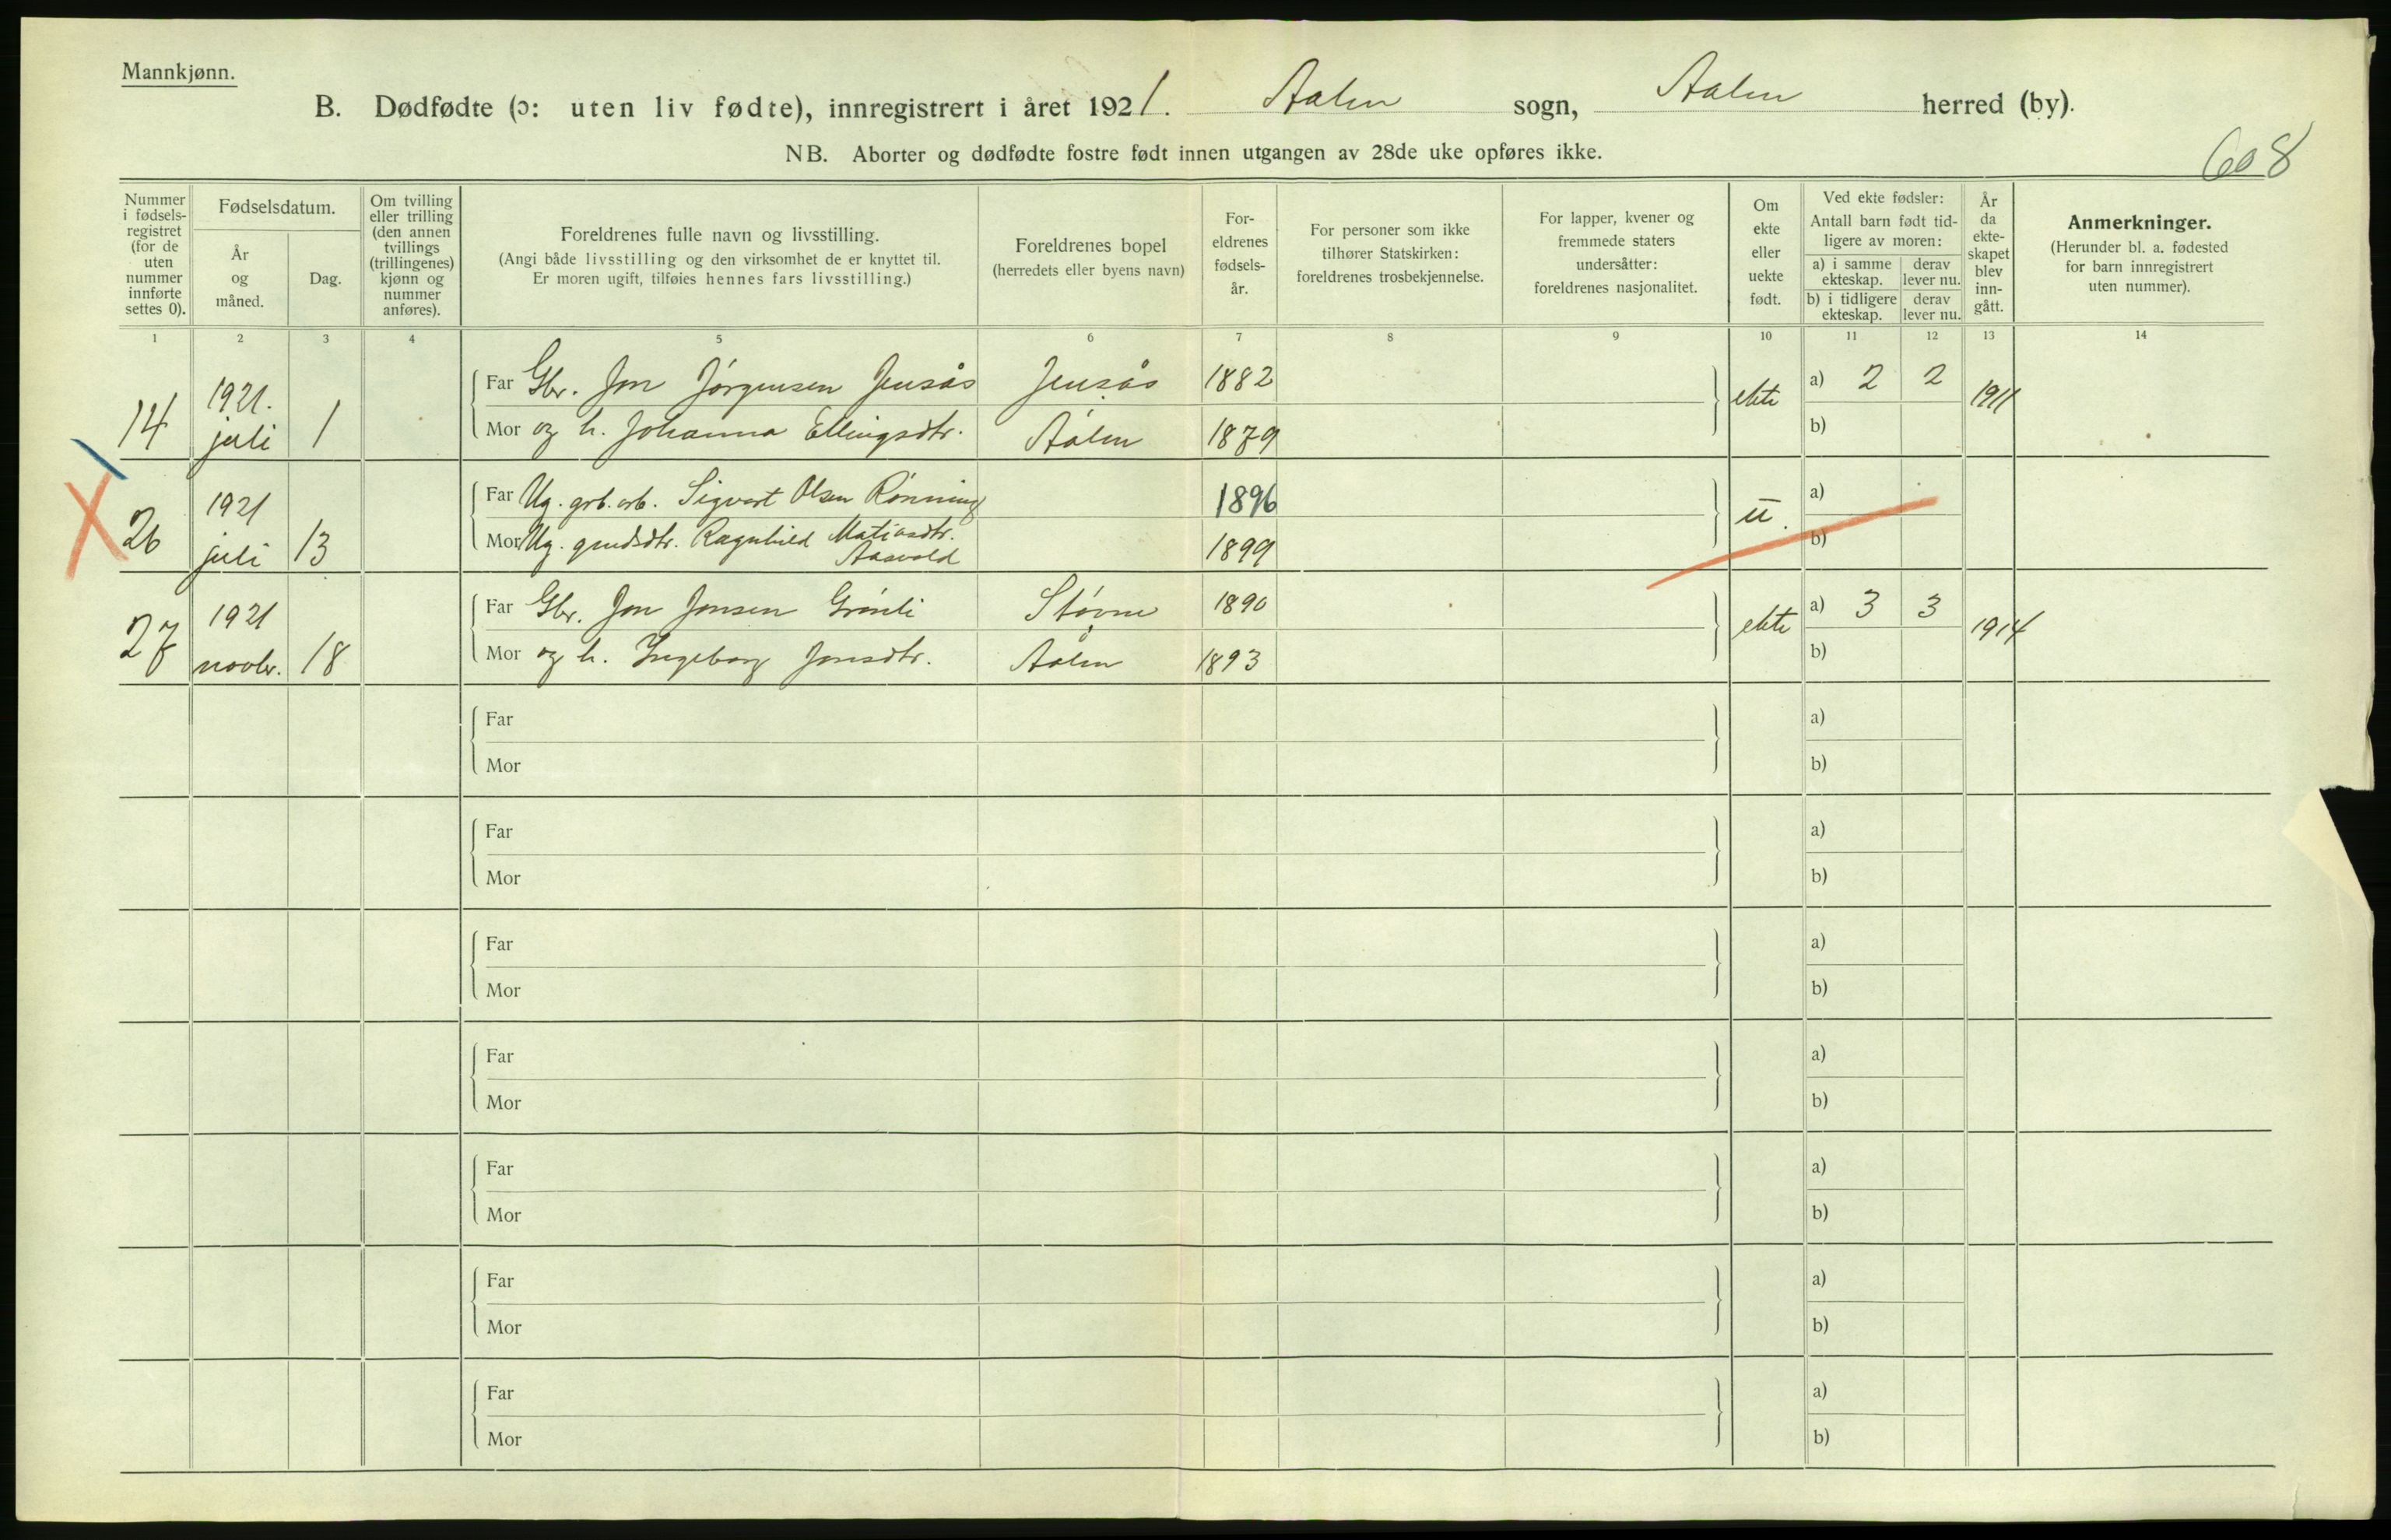 Mannkjønn.
B. Dødfødte (ɔ: uten liv fødte), innregistrert i året 1921. Aalen sogn, Aalen herred (by).
NB. Aborter og dødfødte fostre født innen utgangen av 28de uke opføres ikke.
608
Nummer i fødsels-registret (for de uten nummer innførte settes 0).
Fødselsdatum.
År og måned.
Dag.
Om tvilling eller trilling (den annen tvillings (trillingenes) kjønn og nummer anføres).
Foreldrenes fulle navn og livsstilling.
(Angi både livsstilling og den virksomhet de er knyttet til.
Er moren ugift, tilføies hennes fars livsstilling.)
Foreldrenes bopel
(herredets eller byens navn)
For-eldrenes fødsels-år.
For personer som ikke tilhører Statskirken: foreldrenes trosbekjennelse.
For lapper, kvener og fremmede staters undersåtter: foreldrenes nasjonalitet.
Om ekte eller uekte født.
Ved ekte fødsler:
Antall barn født tid-ligere av moren:
a) i samme ekteskap.
derav lever nu.
b) i tidligere ekteskap.
derav lever nu.
År da ekte-skapet blev inn-gått.
Anmerkninger.
(Herunder bl. a. fødested for barn innregistrert uten nummer).
1 2 3 4 5 6 7 8 9 10 11 12 13 14
14 1921. juli 1
Far Gbr. Jon Jørgensen Jensås Jensås 1882 ekte a) 2 2 1911
Mor og h. Johanna Ellingsdtr. Aalen 1879 b)
26 1921 juli 13
Far Ug. grb. arb. Sigvart Olsen Rønning 1896 u. a)
Mor Ug. grudsdtr. Ragnhild Matiasdtr. Aasvold 1899 b)
27 1921 novbr. 18
Far Gbr. Jon Jonsen Grønli Støvne 1890 ekte a) 3 3 1914
Mor og h. Ingeborg Jonsdtr. Aalen 1893 b)
Far a)
Mor b)
Far a)
Mor b)
Far a)
Mor b)
Far a)
Mor b)
Far a)
Mor b)
Far a)
Mor b)
Far a)
Mor b)